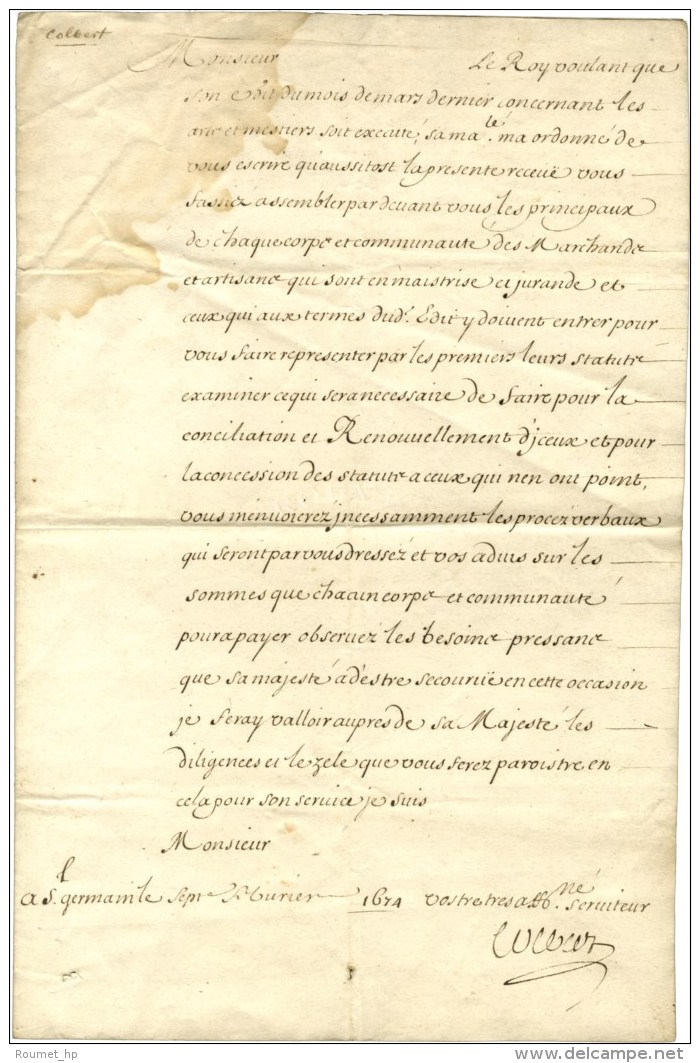 Colbert
Monsieur Le Roy voulant que
son edit du mois de mars dernier concernant les
arts et mestiers soit executé, sa ma.té m'a ordonné de
vous escrire qu'aussitost la presente receuë vous
fassiez assembler par devant vous les principaux
de chaque corps et communauté des Marchands
et artisans qui sont en maistrise et jurande et
ceux qui aux termes dud. Edit y doivent entrer pour
vous faire representer par les premiers leurs statuts
examiner ce qui sera necessaire de faire pour la
conciliation et Renouvellement d'jceux et pour
la concession des statuts a ceux qui nen ont point,
vous m'envoierez jncessamment les procez verbaux
qui seront par vous dressez et vos aduis sur les
sommes que chacun corps et communauté
poura payer observez les besoins pressans
que sa majesté a d'estre secouruë en cette occasion
je feray valloir aupres de sa Majesté les
diligences et le zele que vous ferez paroistre en
cela pour son service je suis
Monsieur
a St. germain le sept.e feburier 1674 vostre tres affo.né serviteur
Colbert
Roumet_hp
www.delcampe.net